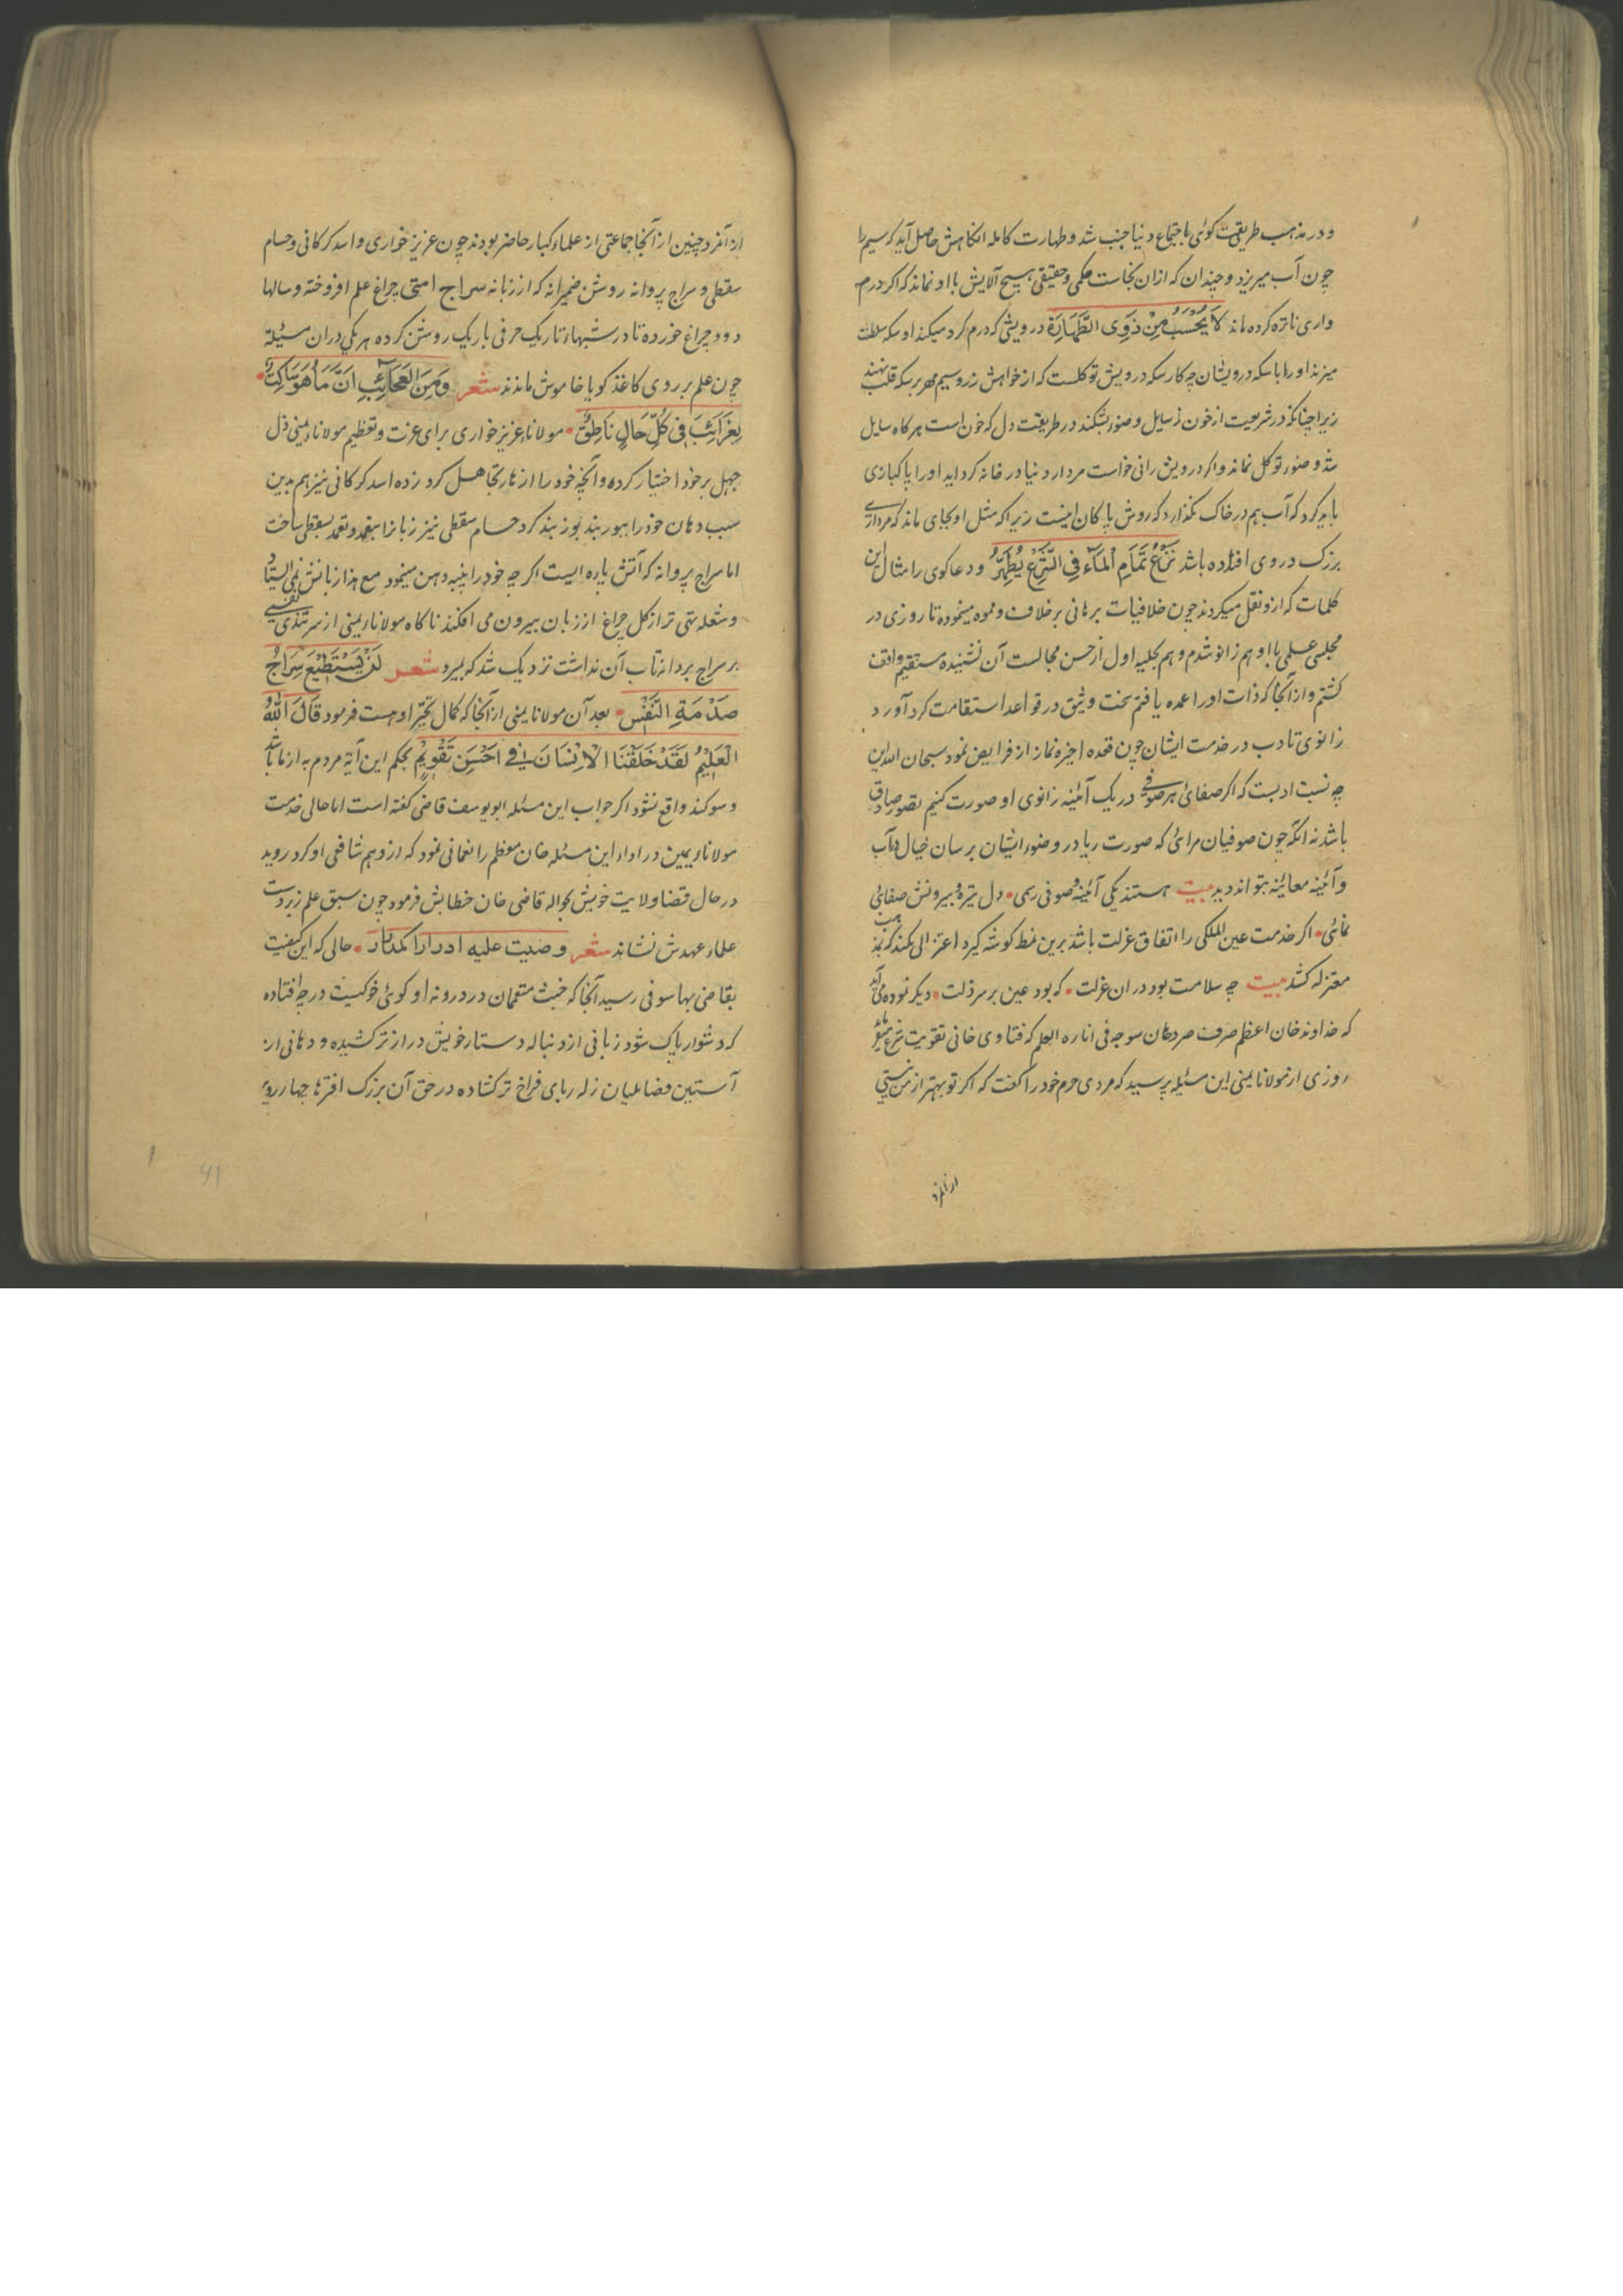 و در مذهب طریقت کوئی باجتماع دنیا جنب شد و طهارت کامله انکاهش حاصل آید که سیم را
چون آب میریزد و چندان که ازان نجاست حکمی و حقیقی هیچ آلایش با او نماند که اگر درم
واری ناتره کرده ماند لَا یُحْسَبُ مِنْ ذَوِی الطَّهَارَةِ درویشی که درم کرد میکند او سکه سلطنت
میزند او را با سکه درویشان چه کار سکه درویش توکلست که از خواهش زر و سیم مهر بر سکه قلب نهند
زیرا چنانکه در شریعت از خون سایل وضو بشکند در طریقت دل که خون است هرکاه سایل
شد وضوء توکل نماند و اکر درویش رانی خواست مردار دنیا در خانه کرد اید او را پاکبازی
باید کرد که آب هم در خاک نکذارد که روش پاکان اینست زیرا که مثل او بجای ماند که مرداری
بزرک در وی افتاده باشد نَزْعُ تَمَامِ الْمَاءِ فِی الشَّرْعِ یُطَهِّرُ و دعاکوی را مثال این
کلمات که ازو نقل میکردند چون خلافیات برهانی برخلاف و نموه مینموده تا روزی در
مجلس علمی با او هم زانو شدم و هم بجلیه اول از حسن مجالست آن نشنیده مستقیم واقف
کشتم و از آنجا که ذات او را عمده یافتم سخت وثیق در قواعد استقامت کرد آورد
زانوی تادب در خدمت ایشان چون قعده اخیره نماز از فرایض نمود سبحان الله این
چه نسبت ادبست که اکر صفائ هر صوفی در یک آئینه زانوی او صورت کنیم تصور صادق
باشد نه انکه چون صوفیان مرائی که صورت ریا در وضوء ایشان برسان خیال در آب
و آئینه معائنه بتواند دید بیت هستند یکی آئینه صوفی رسمی • دل تیره و بیرونش صفائی
نمائی • اکر خدمت عین الملکی را اتفاق عزلت باشد برین نمط کوشه کیرد اعتزالی مکند که بمذهب
معتزله کشد بیت چه سلامت بود دران عزلت • که بود عین بر سر ذلت • دیکر نموده می آید
که خداوند خان اعظم صرف صردهان سوجه فی اناره العلم که فتاوی خانی تقویت شرع
روزی از مولانا یمنی این مسئله پرسید که مردی حرم خود را کفت که اکر تو بهتر از من نیستی
ازانمرد
از آنمرد چنین از آنجا جماعتی از علماء کبار حاضر بودند چون عزیز خواری و اسد کرکانی و حسام
سقطی و سراج پروانه روشن ضمیرانه که از زبانه سراج امتی چراغ علم افروخته و سالها
دود چراغ خورده تا در شبهاء تاریک حرفی باریک روشن کرده هر یکی دران مسئله
چون علم بر روی کاغذ کویا خاموش ماندند شعر وَمِنَ الْعَجَائِبِ اَنَّ مَا هُوَ سَاکِتٌ •
بِغَرَائِبَ فِی کُلِّ حَالٍ نَاطِقٌ • مولانا عزیز خواری برای عزت و تعظیم مولانا یمنی ذل
جهل بر خود اختیار کرده و آنچه خود را از نار تجاهل کرد زده اسد کرکانی نیز هم بدین
سبب دهان خود را ببور بند بوز بند کرد حسام سقطی نیز زبانرا بتعمد بسقطی ساخت
اما سراج پروانه که آتش پاره ایست اکر چه خود را پنبه دهن مینمود مع هذا زبانش نمی ایستاد
و شعله تر از کل چراغ از زبان بیرون می افکند ناکاه مولانا یمنی از سر تندی نفسی
بر سراج بردانه تاب آن نداشت نزدیک شد که بمیرد شعر لَنْ یَسْتَطِیْعَ سِرَاجٌ
صَدْمَةِ النَّفَسِ • بعد آن مولانا یمنی از آنجا که کمال تحیر اوست فرمود قَالَ اللّٰهُ
الْعَلِیْمُ لَقَدْ خَلَقْنَا الْاِنْسَانَ فِی اَحْسَنِ تَقْوِیْمٍ بحکم این آیة مردم به از ماهتاب باشد
و سوکند واقع نشود اکر جواب این مسئله ابویوسف قاضی کفته است اما حالی خدمت
مولانا یمین در اداء این مسئله خان معظم را نعمانی نمود که ازو هم شافعی او کرد روید
در حال قضاء ولایت خویش بحواله قاضی خان خطابش فرمود چون سبق علم زبردست
علماء عهدش نشاند شعر وصیت علیه ادرارا کمدرار • حالی که این کیفیت
بقاضی بهاسوفی رسید آنجا که خبث متعمان در درونه او کوئی خوکیست در چه افتاده
که دشوار پاک شود زبانی از دنباله دستار خویش دراز تر کشیده و دهانی از
آستین فضاءلیان زله ربای فراخ تر کشاده در حق آن بزرک افترها جهاررو
۴۱